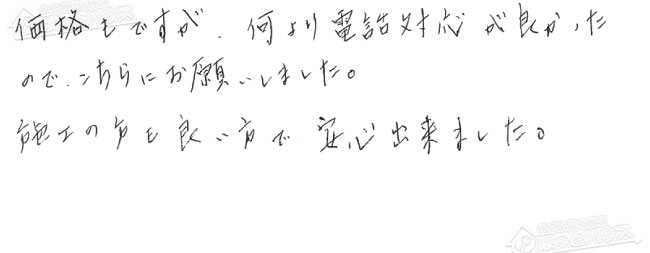 価格もですが、何より電話対応が良かった
ので、こちらにお願いしました。
施工の方も良い方で安心出来ました。